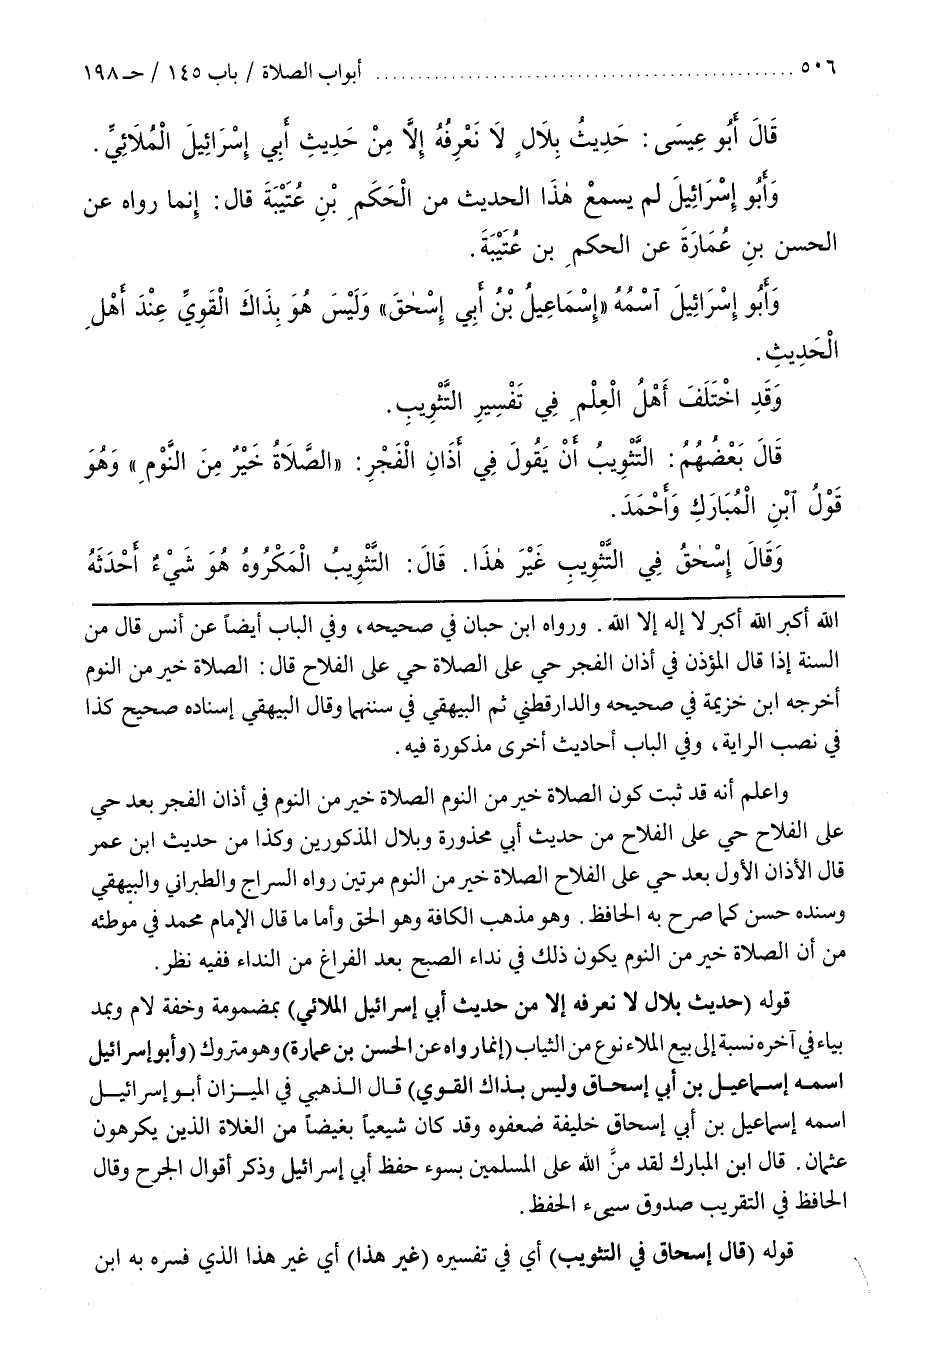 ٥٠٦ ........................................................ أبواب الصلاة / باب ١٤٥ / حـ ١٩٨
قَالَ أَبُو عِيسَى: حَدِيثُ بِلَالٍ لَا نَعْرِفُهُ إِلَّا مِنْ حَدِيثِ أَبِي إِسْرَائِيلَ الْمُلَائِيِّ.
وَأَبُو إِسْرَائِيلَ لم يسمعْ هٰذَا الحديث من الْحَكَمِ بْنِ عُتَيْبَةَ قال: إنما رواه عن
الحسن بنِ عُمَارَةَ عن الحكمِ بن عُتَيْبَةَ.
وَأَبُو إِسْرَائِيلَ ٱسْمُهُ «إِسْمَاعِيلُ بْنُ أَبِي إِسْحٰقَ» وَلَيْسَ هُوَ بِذَاكَ الْقَوِيِّ عِنْدَ أَهْلِ
الْحَدِيثِ.
وَقَدِ اخْتَلَفَ أَهْلُ الْعِلْمِ فِي تَفْسِيرِ التَّثْوِيبِ.
قَالَ بَعْضُهُمْ: التَّثْوِيبُ أَنْ يَقُولَ فِي أَذَانِ الْفَجْرِ: «الصَّلَاةُ خَيْرٌ مِنَ النَّوْمِ» وَهُوَ
قَوْلُ ٱبْنِ الْمُبَارَكِ وَأَحْمَدَ.
وَقَالَ إِسْحٰقُ فِي التَّثْوِيبِ غَيْرَ هٰذَا. قَالَ: التَّثْوِيبُ الْمَكْرُوهُ هُوَ شَيْءٌ أَحْدَثَهُ
الله أكبر الله أكبر لا إله إلا الله. ورواه ابن حبان في صحيحه، وفي الباب أيضاً عن أنس قال من
السنة إذا قال المؤذن في أذان الفجر حي على الصلاة حي على الفلاح قال: الصلاة خير من النوم
أخرجه ابن خزيمة في صحيحه والدارقطني ثم البيهقي في سننهما وقال البيهقي إسناده صحيح كذا
في نصب الراية، وفي الباب أحاديث أخرى مذكورة فيه.
واعلم أنه قد ثبت كون الصلاة خير من النوم الصلاة خير من النوم في أذان الفجر بعد حي
على الفلاح حي على الفلاح من حديث أبي محذورة وبلال المذكورين وكذا من حديث ابن عمر
قال الأذان الأول بعد حي على الفلاح الصلاة خير من النوم مرتين رواه السراج والطبراني والبيهقي
وسنده حسن كما صرح به الحافظ. وهو مذهب الكافة وهو الحق وأما ما قال الإمام محمد في موطئه
من أن الصلاة خير من النوم يكون ذلك في نداء الصبح بعد الفراغ من النداء ففيه نظر.
قوله (حديث بلال لا نعرفه إلا من حديث أبي إسرائيل الملائي) بمضمومة وخفة لام وبمد
بياء في آخره نسبة إلى بيع الملاء نوع من الثياب (إنما رواه عن الحسن بن عمارة) وهو متروك (وأبو إسرائيل
اسمه إسماعيل بن أبي إسحاق وليس بذاك القوي) قال الذهبي في الميزان أبو إسرائيل
اسمه إسماعيل بن أبي إسحاق خليفة ضعفوه وقد كان شيعياً بغيضاً من الغلاة الذين يكرهون
عثمان. قال ابن المبارك لقد منَّ الله على المسلمين بسوء حفظ أبي إسرائيل وذكر أقوال الجرح وقال
الحافظ في التقريب صدوق سيىء الحفظ.
قوله (قال إسحاق في التثويب) أي في تفسيره (غير هذا) أي غير هذا الذي فسره به ابن